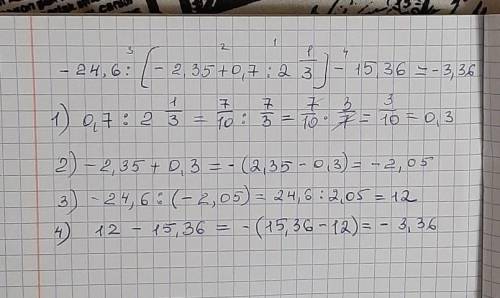 -24,6 : [-2,35+0,7 : 2 1/3] - 15,36 = -3,36
1) 0,7 : 2 1/3 = 7/10 : 7/3 = 7/10 · 3/7 = 3/10 = 0,3
2) -2,35 + 0,3 = -(2,35 - 0,3) = -2,05
3) -24,6 : (-2,05) = 24,6 : 2,05 = 12
4) 12 - 15,36 = -(15,36-12) = - 3,36